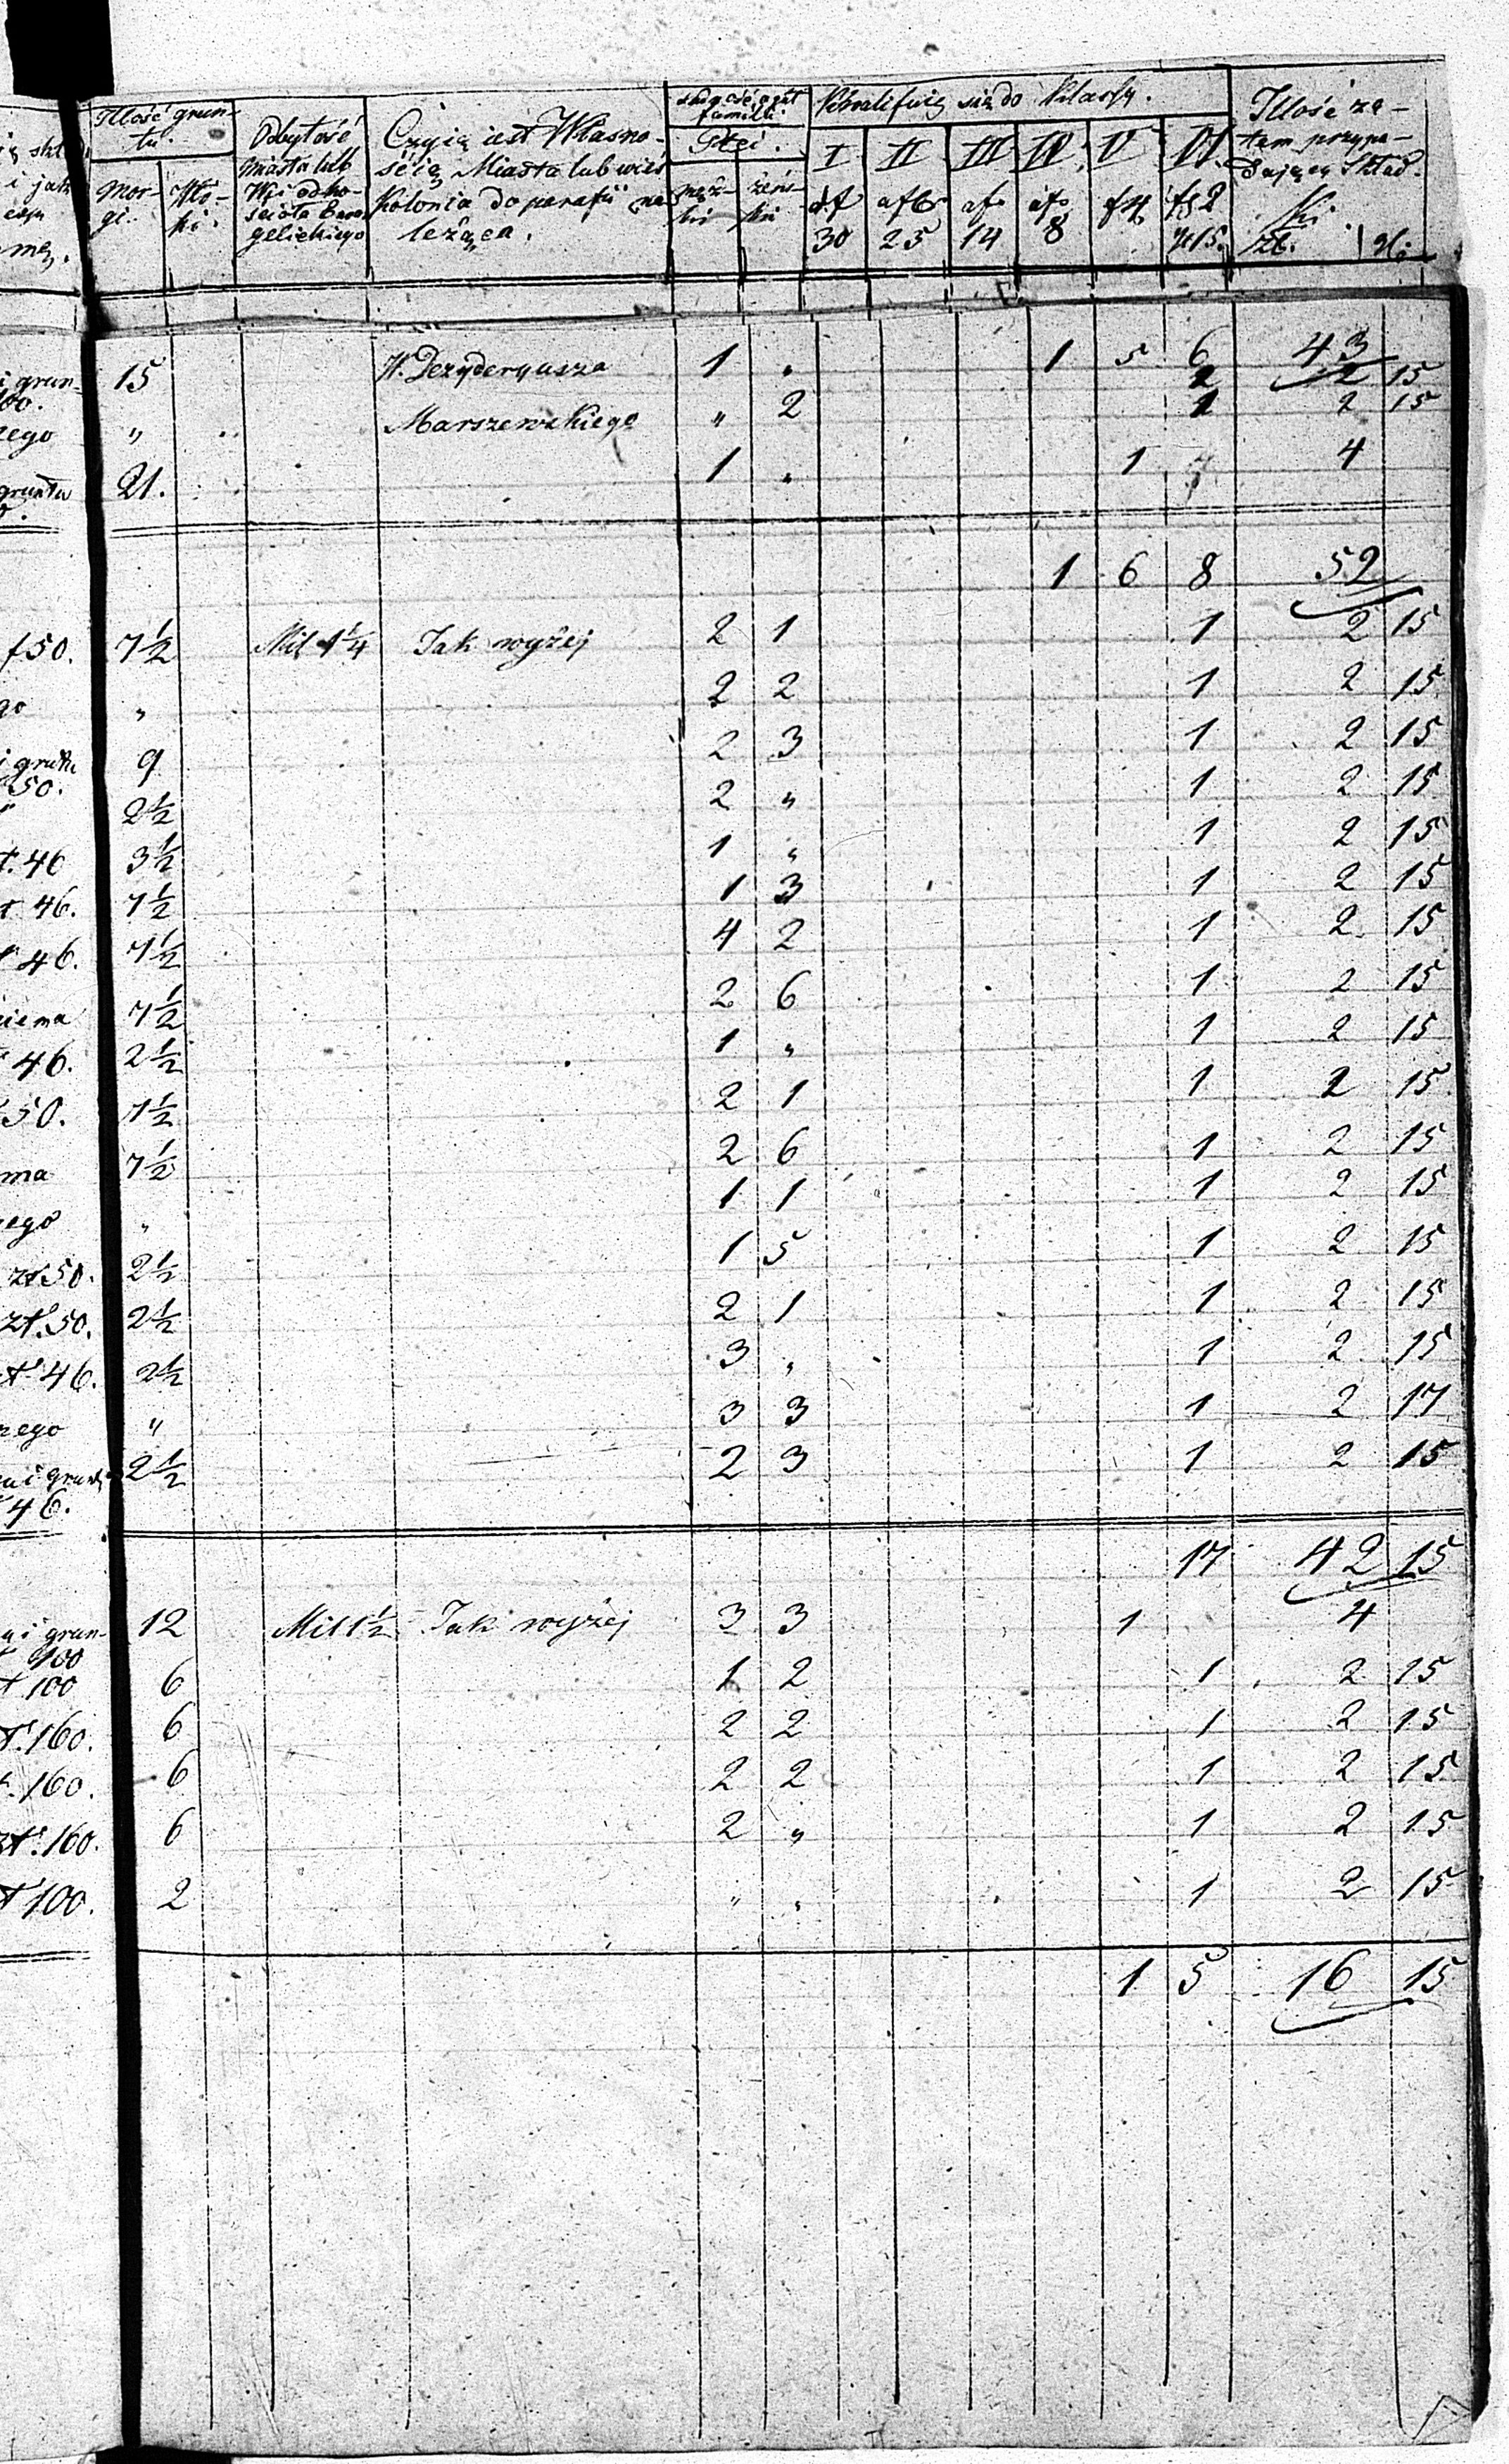 Ilość grun-
tu.
Mor-
gi.
Odległość
miasta lub
Wsi od ko-
ścioła Ewa
gelickiego
Czyią iest Własno-
ścią Miasta lub wieś
Kolonia do parafii na
leżąca.
familii.
Płci.
męz-
ki
żeńs-
ki
Kwalifikuię się do Klassy.
I II III IV V VI
30 25 14 8 f 4 f 2
g 15.
Ilość za-
tem przypa-
daiącey Skład-
ki.
zł. gr.
i grun-
100. 15 W. Dezyderyusza 1 " 1 5 6 43
2 2 15
zego " Marszewskiego " 2 1 2 15
gruntu 21. 1 " 1 4
1 6 8 52
f 50. 7½ Mil 1¼ Jak wyżej 2 1 1 2 15
go " 2 2 1 2 15
i gruntu
50. 9 2 3 1 2 15
2½ 2 " 1 2 15
t. 46 3½ 1 " 1 2 15
t 46. 7½ 1 3 1 2 15
46. 7½ 4 2 1 2 15
7½ 2 6 1 2 15
46. 2½ 1 " 1 2 15
50. 7½ 2 1 1 2 15
ma 7½ 2 6 1 2 15
zego " 1 1 1 2 15
zł. 50. 2½ 1 5 1 2 15
zł. 50. 2½ 2 1 1 2 15
t 46. 2½ 3 " 1 2 15
zego " 3 3 1 2 17
u i grun
46. 2½ 2 3 1 2 15
17 42 15
u i grun-
100 12 Mil 1½ Jak wyżej 3 3 1 4
t 100 6 1 2 1 2 15
t. 160. 6 2 2 1 2 15
160. 6 2 2 1 2 15
zł. 160. 6 2 " 1 2 15
t 100. 2 " " 1 2 15
1 5 16 15